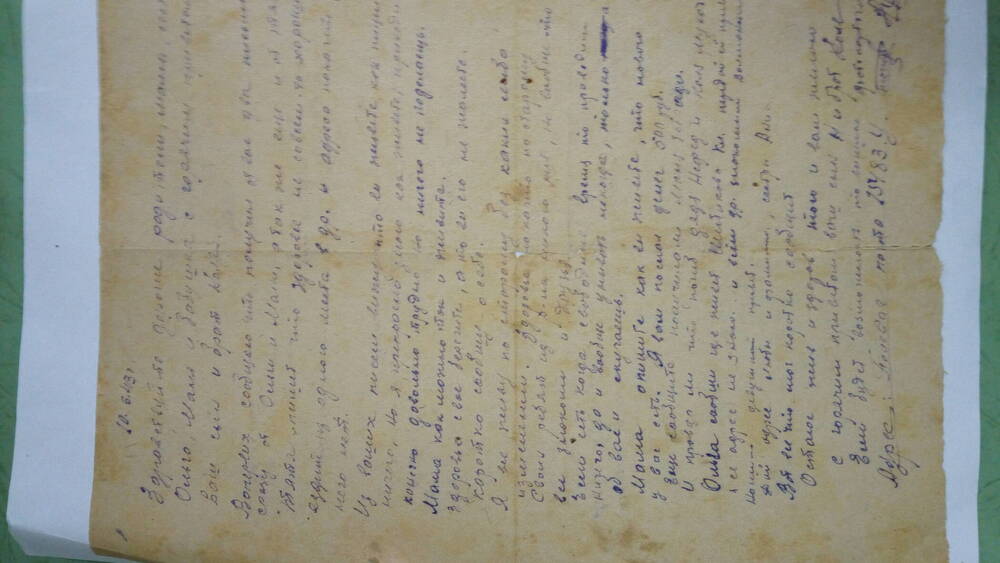 10.6.43 г.
Здравствуйте дорогие родители, мама,
Ольга, Маня и бабушка с горячим приветом
Ваш сын и брат Коля.
Вопервих сообщаю что получил от вас два письма
сразу от Ольги и Мани, а так же еще и от
Тятя пишит что здоровье не совсем то хорош
ездит из одного места в др. и адреса пока
него нет.
Из ваших писем вижу что ви живете как
ничего, но я прекрасно знаю как живете,
конечно довольно трудно но ничего не поделаешь.
Мама как можно так и живите.
Здоровье свое берегите, а то ви его не жалеете.
Коротко сообщу о себе.
Я все живу по старому без каких либо
изменений. Здоровье пока что по старому
Своих ребят из р-на никого нет, но вообще что
все знакоми и друзья.
Если есть когда свободние время то проводим
ничего, да и вообще унивать некогда, только
об вас и скучаешь.
Мама опишите как ви живете, что нового
у вас есть. Я вам послал денег 500 руб.
Еще сообщите получили
И правда ли что погиб дядя и Коля
Ольга сообщи где живет Кл. передай ей
я ее адрес не знаю. и всем др. знакомим
девушкам привет.
Дай адрес Любы и сестри
Вот все что мог коротко сообщит
Остаюс жив и здоров того и вам желаю
с горячим приветом ваш сын и брат Коля
Если будет возможность то вишлю
Адрес: Полевая почта 25783.У.